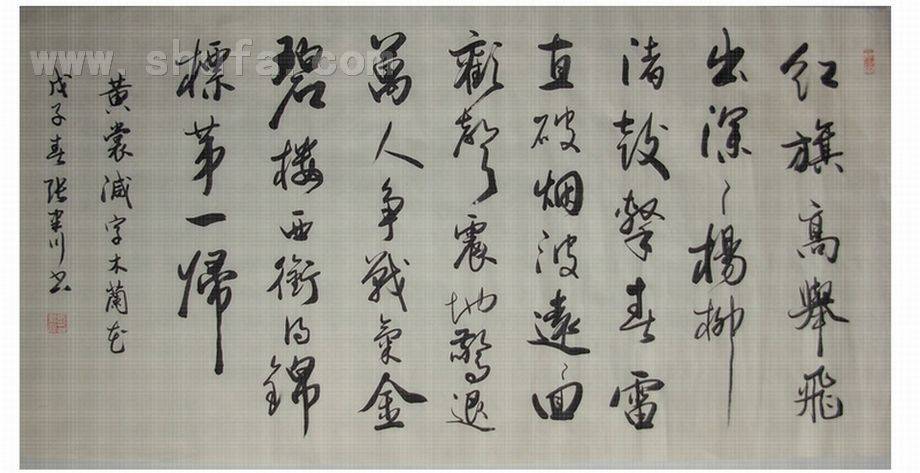 红旗高舉飛
出深〻楊柳
渚鼓擊春雷
直破烟波遠〻回
歡聲震地驚退
萬人争戰氣金
碧樓西銜得錦
標第一歸
黄裳減字木蘭花
戊子春張川書
www.shufa.com